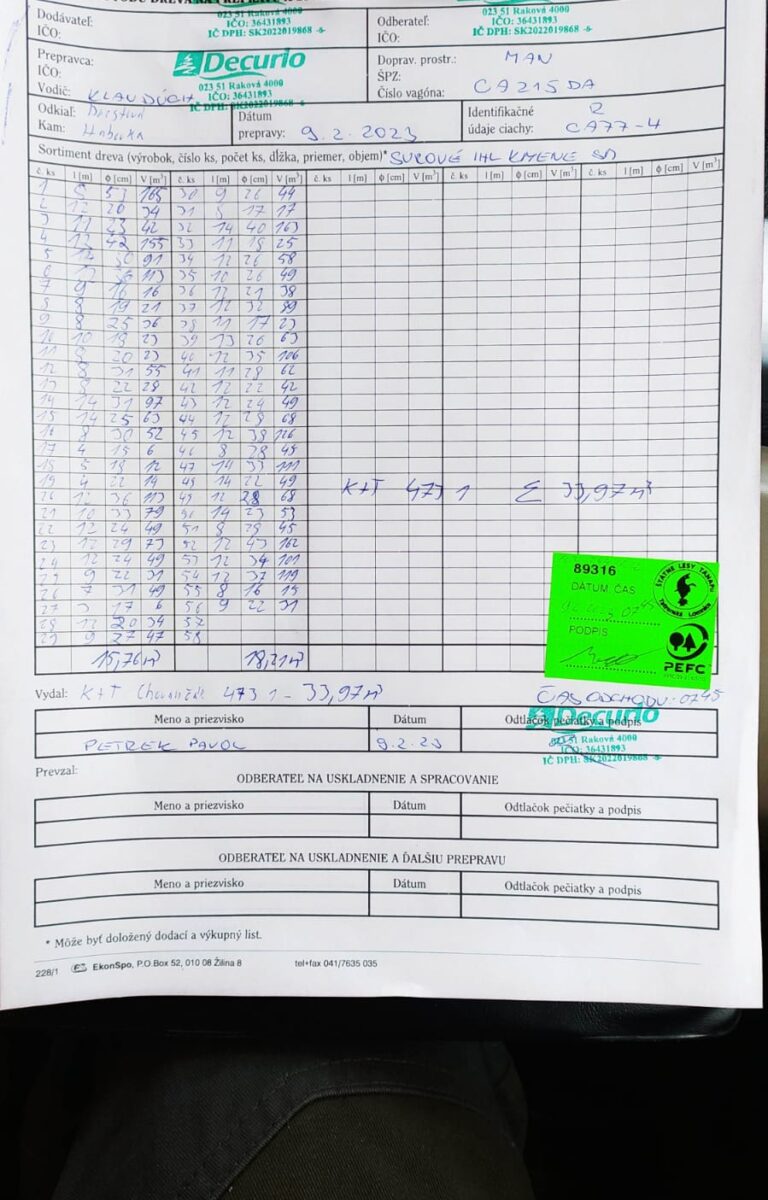 023 51 Raková 4000
IČO: 36431893
IČ DPH: SK2022019868 -6-
Dodávateľ:
IČO:
023 51 Raková 4000
IČO: 36431893
IČ DPH: SK2022019868 -6-
Odberateľ:
IČO:
Prepravca:
IČO:
Vodič: KLAUDÚCH
Decurio
023 51 Raková 4000
IČO: 36431893
IČ DPH: SK2022019868 -6-
Doprav. prostr.: MAN
ŠPZ:
Číslo vagóna: CA215DA
Odkiaľ:
Kam:
Dátum
prepravy: 9.2.2023
Identifikačné
údaje ciachy: CA77-4
Sortiment dreva (výrobok, číslo ks, počet ks, dĺžka, priemer, objem)* SUROVÉ IHL KMENE
č. ks l [m] ϕ [cm] V [m³] č. ks l [m] ϕ [cm] V [m³] č. ks l [m] ϕ [cm] V [m³] č. ks l [m] ϕ [cm] V [m³] č. ks l [m] ϕ [cm] V [m³]
1 53 165 30 9 26 44
2 12 20 34 31 17 17
3 42 32 14 40 163
4 42 155 33 11 25
5 91 34 12 26 58
6 113 35 10 26 49
7 9 16 16 36 12 21 38
8 8 19 21 37 12 32 89
9 8 25 36 38 11 17 23
10 10 23 39 13 26 63
11 20 23 40 12 35 106
12 8 31 55 41 11 28 62
13 8 22 28 42 12 22 42
14 14 31 97 43 12 24 49
15 14 25 63 44 12 28 68
16 8 30 52 45 12 126
17 4 15 6 46 8 28 45
18 5 18 12 47 14 33 111
19 4 22 14 48 14 22 49
20 12 36 113 49 12 28 68
K+T 473 1 Σ 33,97m³
21 10 33 79 50 14 23 53
22 12 24 49 51 8 45
23 12 29 73 52 12 43 162
24 12 24 49 53 12 34 101
25 9 22 31 54 12 37 119
26 7 31 49 55 8 16 15
27 3 17 6 56 9 22 31
28 12 20 34 57
29 9 27 47 58
15,76m³ 18,21m³
89316
DÁTUM, ČAS
0745
PODPIS
ŠTÁTNE LESY TANAPU
Tatranská Lomnica
PEFC
Vydal: K+T 473 1 - 33,97m³
ČAS ODCHODU: 0745
Meno a priezvisko Dátum Odtlačok pečiatky a podpis
PETREK PAVOL 9.2.23
Decurio
023 51 Raková 4000
IČO: 36431893
IČ DPH: SK2022019868 -6-
Prevzal:
ODBERATEĽ NA USKLADNENIE A SPRACOVANIE
Meno a priezvisko Dátum Odtlačok pečiatky a podpis
ODBERATEĽ NA USKLADNENIE A ĎALŠIU PREPRAVU
Meno a priezvisko Dátum Odtlačok pečiatky a podpis
* Môže byť doložený dodací a výkupný list.
228/1 EkonSpo, P.O.Box 52, 010 08 Žilina 8 tel+fax 041/7635 035